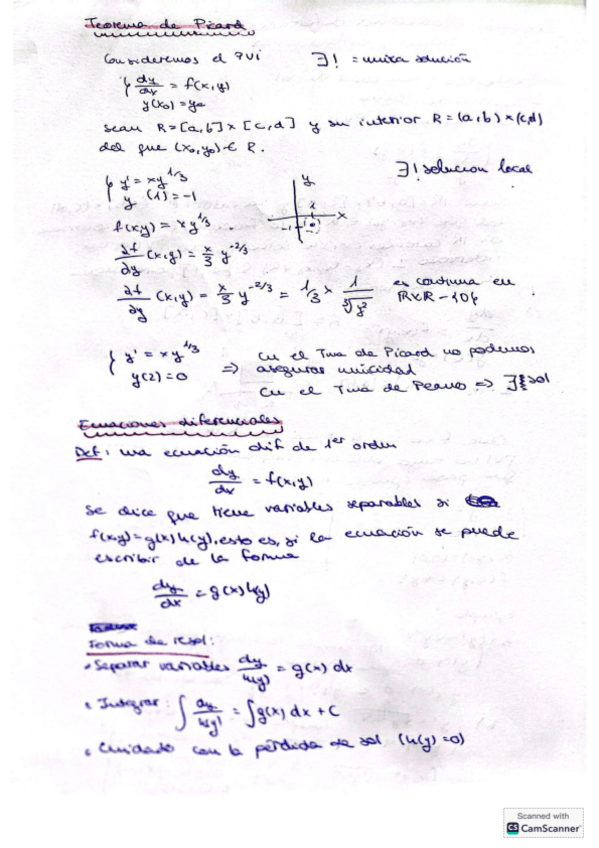 Teorema de Picard
Consideremos el PVI ∃! = unica solución
{ dy/dx = f(x,y)
y(x₀)=y₀
sean R=[a,b]×[c,d] y su interior R=(a,b)×(c,d)
del que (x₀,y₀)∈ R.
{ y' = xy^1/3 ∃! solucion local
y (1)=-1
f(xy) = xy^1/3
y
x
∂f/∂y (x,y) = x/3 y^-2/3
∂f/∂y (x,y) = x/3 y^-2/3 = 1/3 x 1/∛y² es continua en
R×R-{0}
{ y' = xy^1/3
y(2)=0 => Cn el Tma de Picard no podemos
asegurar unicidad
Cn el Tma de Peano => ∃ sol
Ecuaciones diferenciales
Def: una ecuación dif de 1er orden
dy/dx = f(x,y)
Se dice que tiene variables separables si
f(x,y)=g(x)h(y), esto es, si la ecuación se puede
escribir de la forma
dy/dx = g(x)h(y)
Forma de resol:
• Separar variables dy/h(y) = g(x) dx
• Integrar: ∫ dy/h(y) = ∫g(x) dx + C
• Cuidado con la pérdida de sol (h(y)=0)
Scanned with
CS CamScanner